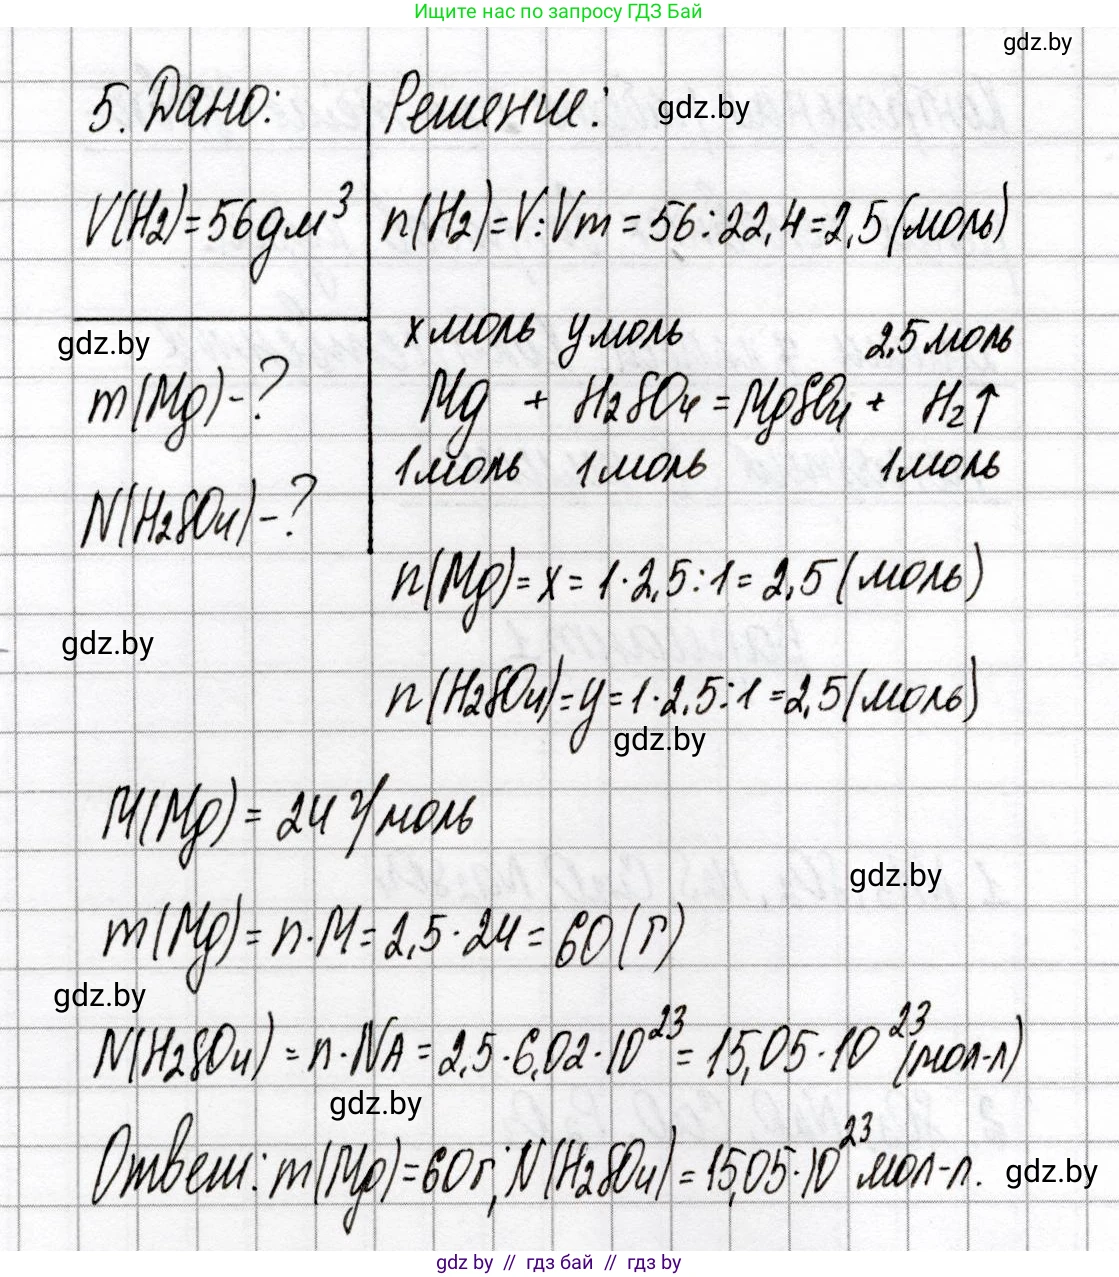 Ищите нас по запросу ГДЗ Бай
gdz.by
5. Дано:
Решение:
gdz.by
V(H2)=56дм³
n(H2)=V:Vm=56:22,4=2,5(моль)
x моль y моль 2,5 моль
gdz.by
m(Mg)-?
Mg + H2SO4 = MgSO4 + H2↑
1 моль 1 моль 1 моль
N(H2SO4)-?
n(Mg)=x=1·2,5:1=2,5(моль)
gdz.by
n(H2SO4)=y=1·2,5:1=2,5(моль)
gdz.by
M(Mg)=24 г/моль
gdz.by
m(Mg)=n·M=2,5·24=60(г)
gdz.by
N(H2SO4)=n·NA=2,5·6,02·10²³=15,05·10²³(мол-л)
gdz.by
Ответ: m(Mg)=60г; N(H2SO4)=15,05·10²³ мол-л.
gdz.by
gdz by // гдз бай // гдз by